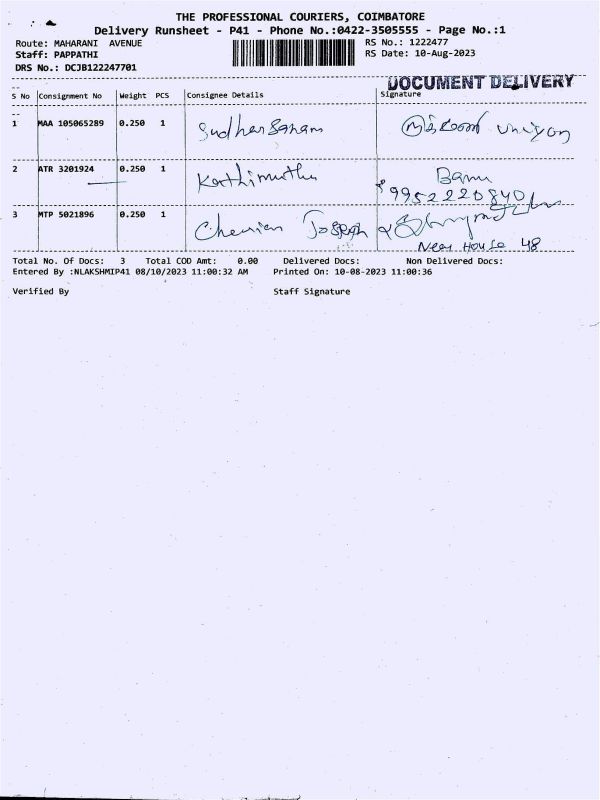 THE PROFESSIONAL COURIERS, COIMBATORE
Delivery Runsheet - P41 - Phone No.:0422-3505555 - Page No.:1
Route: MAHARANI AVENUE RS No.: 1222477
Staff: PAPPATHI RS Date: 10-Aug-2023
DRS No.: DCJB122247701
DOCUMENT DELIVERY
S No Consignment No Weight PCS Consignee Details Signature
1 MAA 105065289 0.250 1
2 ATR 3201924 0.250 1 Karthimuthu Banu
9952220840
3 MTP 5021896 0.250 1 Cherian Joseph
Near House 48
Total No. Of Docs: 3 Total COD Amt: 0.00 Delivered Docs: Non Delivered Docs:
Entered By :NLAKSHMIP41 08/10/2023 11:00:32 AM Printed On: 10-08-2023 11:00:36
Verified By Staff Signature